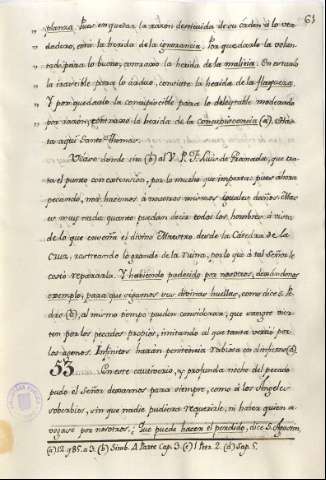 63
planza. Pues en quanto la razon destituida de su orden á lo ver-
dadero, está la herida de la ignorancia. Por quedarlo la volun-
tad para lo bueno, contraxo la herida de la malicia. En
la irascible para lo arduo, consiste la herida de la flaqueza.
Y por quedarlo la concupiscible para lo delegtable moderado
por razon, contraxo la herida de la concupiscencia (a). Has-
ta aqui Santo Thomas.
Vease donde cito (b) al V. P. F. Luis de Granada, que tra-
ta el punto con extension, por lo mucho que importa: pues ahora
pecando, nos hacemos á nosotros mismos iguales daños. Mas
es muy nada quanto puedan decir todos los hombres á vista
de lo que enseña el divino Maestro desde la Cátedra de la
Cruz, rastreando lo grande de la ruina, por lo que á tal Señor le
costó repararla. Y habiendo padecido por nosotros, dexándonos
exemplo, para que sigamos sus divinas huellas, como dice S. Pe-
dro (c), al mismo tiempo pueden considerar, que sangre vier-
ten por los pecados propios, imitando al que tanta vertió por
los agenos. Infinitos harán penitencia rabiosa en (d)
53 Con este cautiverio, y profunda noche del pecado
pudo el Señor dexarnos para siempre, como á los Angeles
soberbios, sin que nadie pudiera requerirle, ni haber quien a-
vogase por nosotros. ¿Que puede hacer el perdido, dice S. Agustin,
(a) 12. q 85. a 3. (b) Simb. 3. Parte Cap. 3. (c) 1 Petr. 2. (d) Sap. 5.